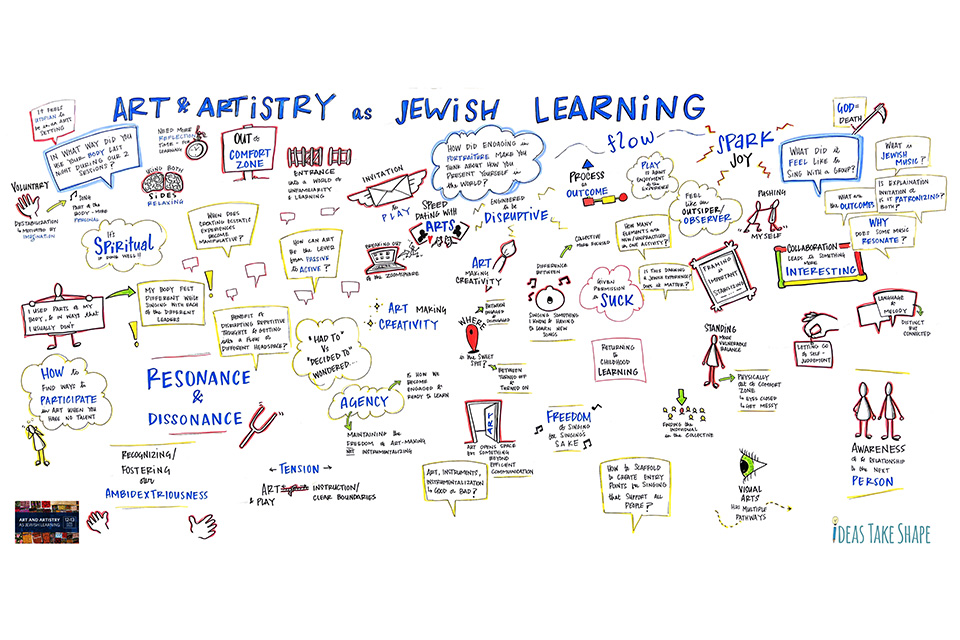 ART & ARTISTRY as JEWISH LEARNING
IT FEELS
UTOPIAN TO
BE IN AN ARTS
SETTING
IN WHAT WAY DID YOU
USE YOUR BODY LAST
NIGHT DURING OUR 2
SESSIONS?
NEED MORE
REFLECTION
TIME - FOR
LEARNING
OUT of
COMFORT
ZONE
USING BOTH
SIDES
RELAXING
VOLUNTARY
DESTABILIZATION
IS MOTIVATED BY
IMAGINATION
SING
PART of the
BODY - MORE
PERSONAL
IT'S
SPIRITUAL
IF DONE WELL!!
WHEN DOES
COCKTING SCIENTIST
EXPERIENCES
BECOME
MANIPULATIVE?
ENTRANCE
INTO A WORLD OF
UNFAMILIARITY
& LEARNING
HOW CAN ART
BE THE LEVER
FROM PASSIVE
TO ACTIVE?
INVITATION
to PLAY
SPEED
DATING WITH
ARTS
BREAKING OUT
of the ZOOMOSPHERE
HOW DID ENGAGING IN
PORTRAITURE MAKE YOU
THINK ABOUT HOW YOU
PRESENT YOURSELF IN
THE WORLD?
ENGINEERED
to be
DISRUPTIVE
ART
MAKING
CREATIVITY
flow
PROCESS
to
OUTCOME
PLAY
IS ABOUT
ENJOYMENT of
the EXPERIENCE
FEEL
LIKE AN
OUTSIDER/
OBSERVER
COLLECTIVE
MORE FOCUSED
HOW MANY
ELEMENTS ARE
NEW/UNPRACTISED
IN ONE ACTIVITY?
SPARK
JOY
PUSHING
MYSELF
GOD =
DEATH
WHAT DID IT
FEEL LIKE TO
SING WITH A GROUP?
WHAT IS
JEWISH
MUSIC?
WHAT ARE
the OUTCOMES
IS EXPLANATION
INVITATION or
IS it PATRONIZING?
BOTH?
WHY
DOES SOME MUSIC
RESONATE?
COLLABORATION
LEADS to SOMETHING
MORE
INTERESTING
FRAMING is
IMPORTANT
I USED PARTS of MY
BODY, & IN WAYS that
I USUALLY DON'T
MY BODY FELT
DIFFERENT WHILE
SINGING WITH EACH
OF THE DIFFERENT
LEADERS
BENEFIT of
DISRUPTING REPETITIVE
THOUGHTS & GETTING
INTO A FLOW or
DIFFERENT HEADSPACE?
ART MAKING
CREATIVITY
WHERE
is the SWEET
SPOT?
BETWEEN
ENGAGED &
DISENGAGED
BETWEEN
TURNED OFF &
TURNED ON
DIFFERENCE
BETWEEN
SINGING SOMETHING
I KNOW & HAVING
TO LEARN NEW
SONGS
GIVEN
PERMISSION
to SUCK
IS THIS DRAWING
A JEWISH EXPERIENCE?
DOES it MATTER?
LANGUAGE &
MELODY
DISTINCT
BUT
CONNECTED
LETTING GO
of SELF-
JUDGEMENT
"HAD TO"
Vs
"DECIDED TO"
WONDERED...
RETURNING
to CHILDHOOD
LEARNING
STANDING
MORE
VULNERABLE
BALANCE
PHYSICALLY
OUT of COMFORT
ZONE
EYES CLOSED
GET MESSY
HOW to
FIND WAYS to
PARTICIPATE
in ART WHEN YOU
HAVE NO TALENT
RESONANCE
&
DISSONANCE
AGENCY
IS HOW WE
BECOME
ENGAGED &
READY to LEARN
MAINTAINING the
FREEDOM of ART-MAKING
NOT INSTRUMENTALIZING
ART
ART OPENS SPACE
for SOMETHING
BEYOND
EFFICIENT
COMMUNICATION
FREEDOM
of SINGING
for SINGING'S
SAKE
FINDING the
INDIVIDUAL
in the COLLECTIVE
AWARENESS
of & RELATIONSHIP
to the NEXT
PERSON
RECOGNIZING/
FOSTERING
our
AMBIDEXTRIOUSNESS
TENSION
ART
& PLAY
INSTRUCTION/
CLEAR BOUNDARIES
ART, INSTRUMENTS,
INSTRUMENTALIZATION
is GOOD or BAD?
HOW to SCAFFOLD
to CREATE ENTRY
POINTS for SINGING
that SUPPORT ALL
PEOPLE?
VISUAL
ARTS
HAS MULTIPLE
PATHWAYS
ART AND ARTISTRY
AS JEWISH LEARNING
IDEAS TAKE SHAPE